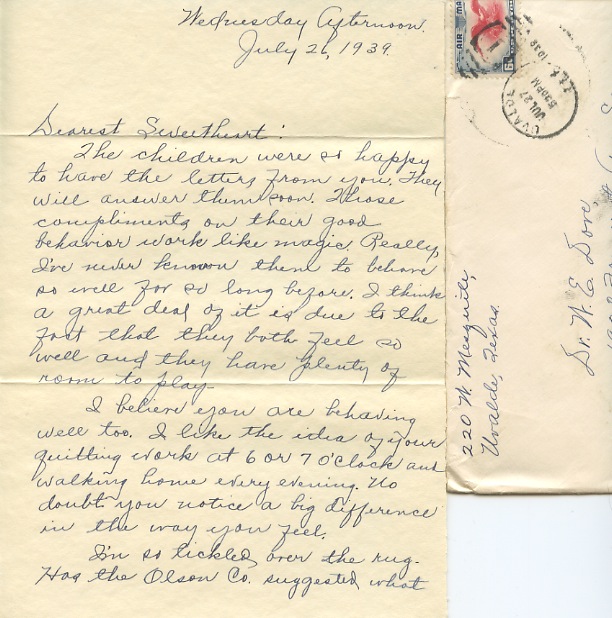 Wednesday Afternoon.
July 26, 1939.
Dearest Sweetheart:
The children were so happy
to have the letters from you. They
will answer them soon. Those
compliments on their good
behavior work like magic. Really,
I've never known them to behave
so well for so long before. I think
a great deal of it is due to the
fact that they both feel so
well and they have plenty of
room to play.
I believe you are behaving
well too. I like the idea of your
quitting work at 6 or 7 o'clock and
walking home every evening. No
doubt you notice a big difference
in the way you feel.
I'm so tickled over the rug.
Has the Olson Co. suggested what
AIR MA
6¢
UVALDE
JUL 27
530PM
220 N. Mesquite,
Uvalde, Texas.
Dr. W. E. Dove,